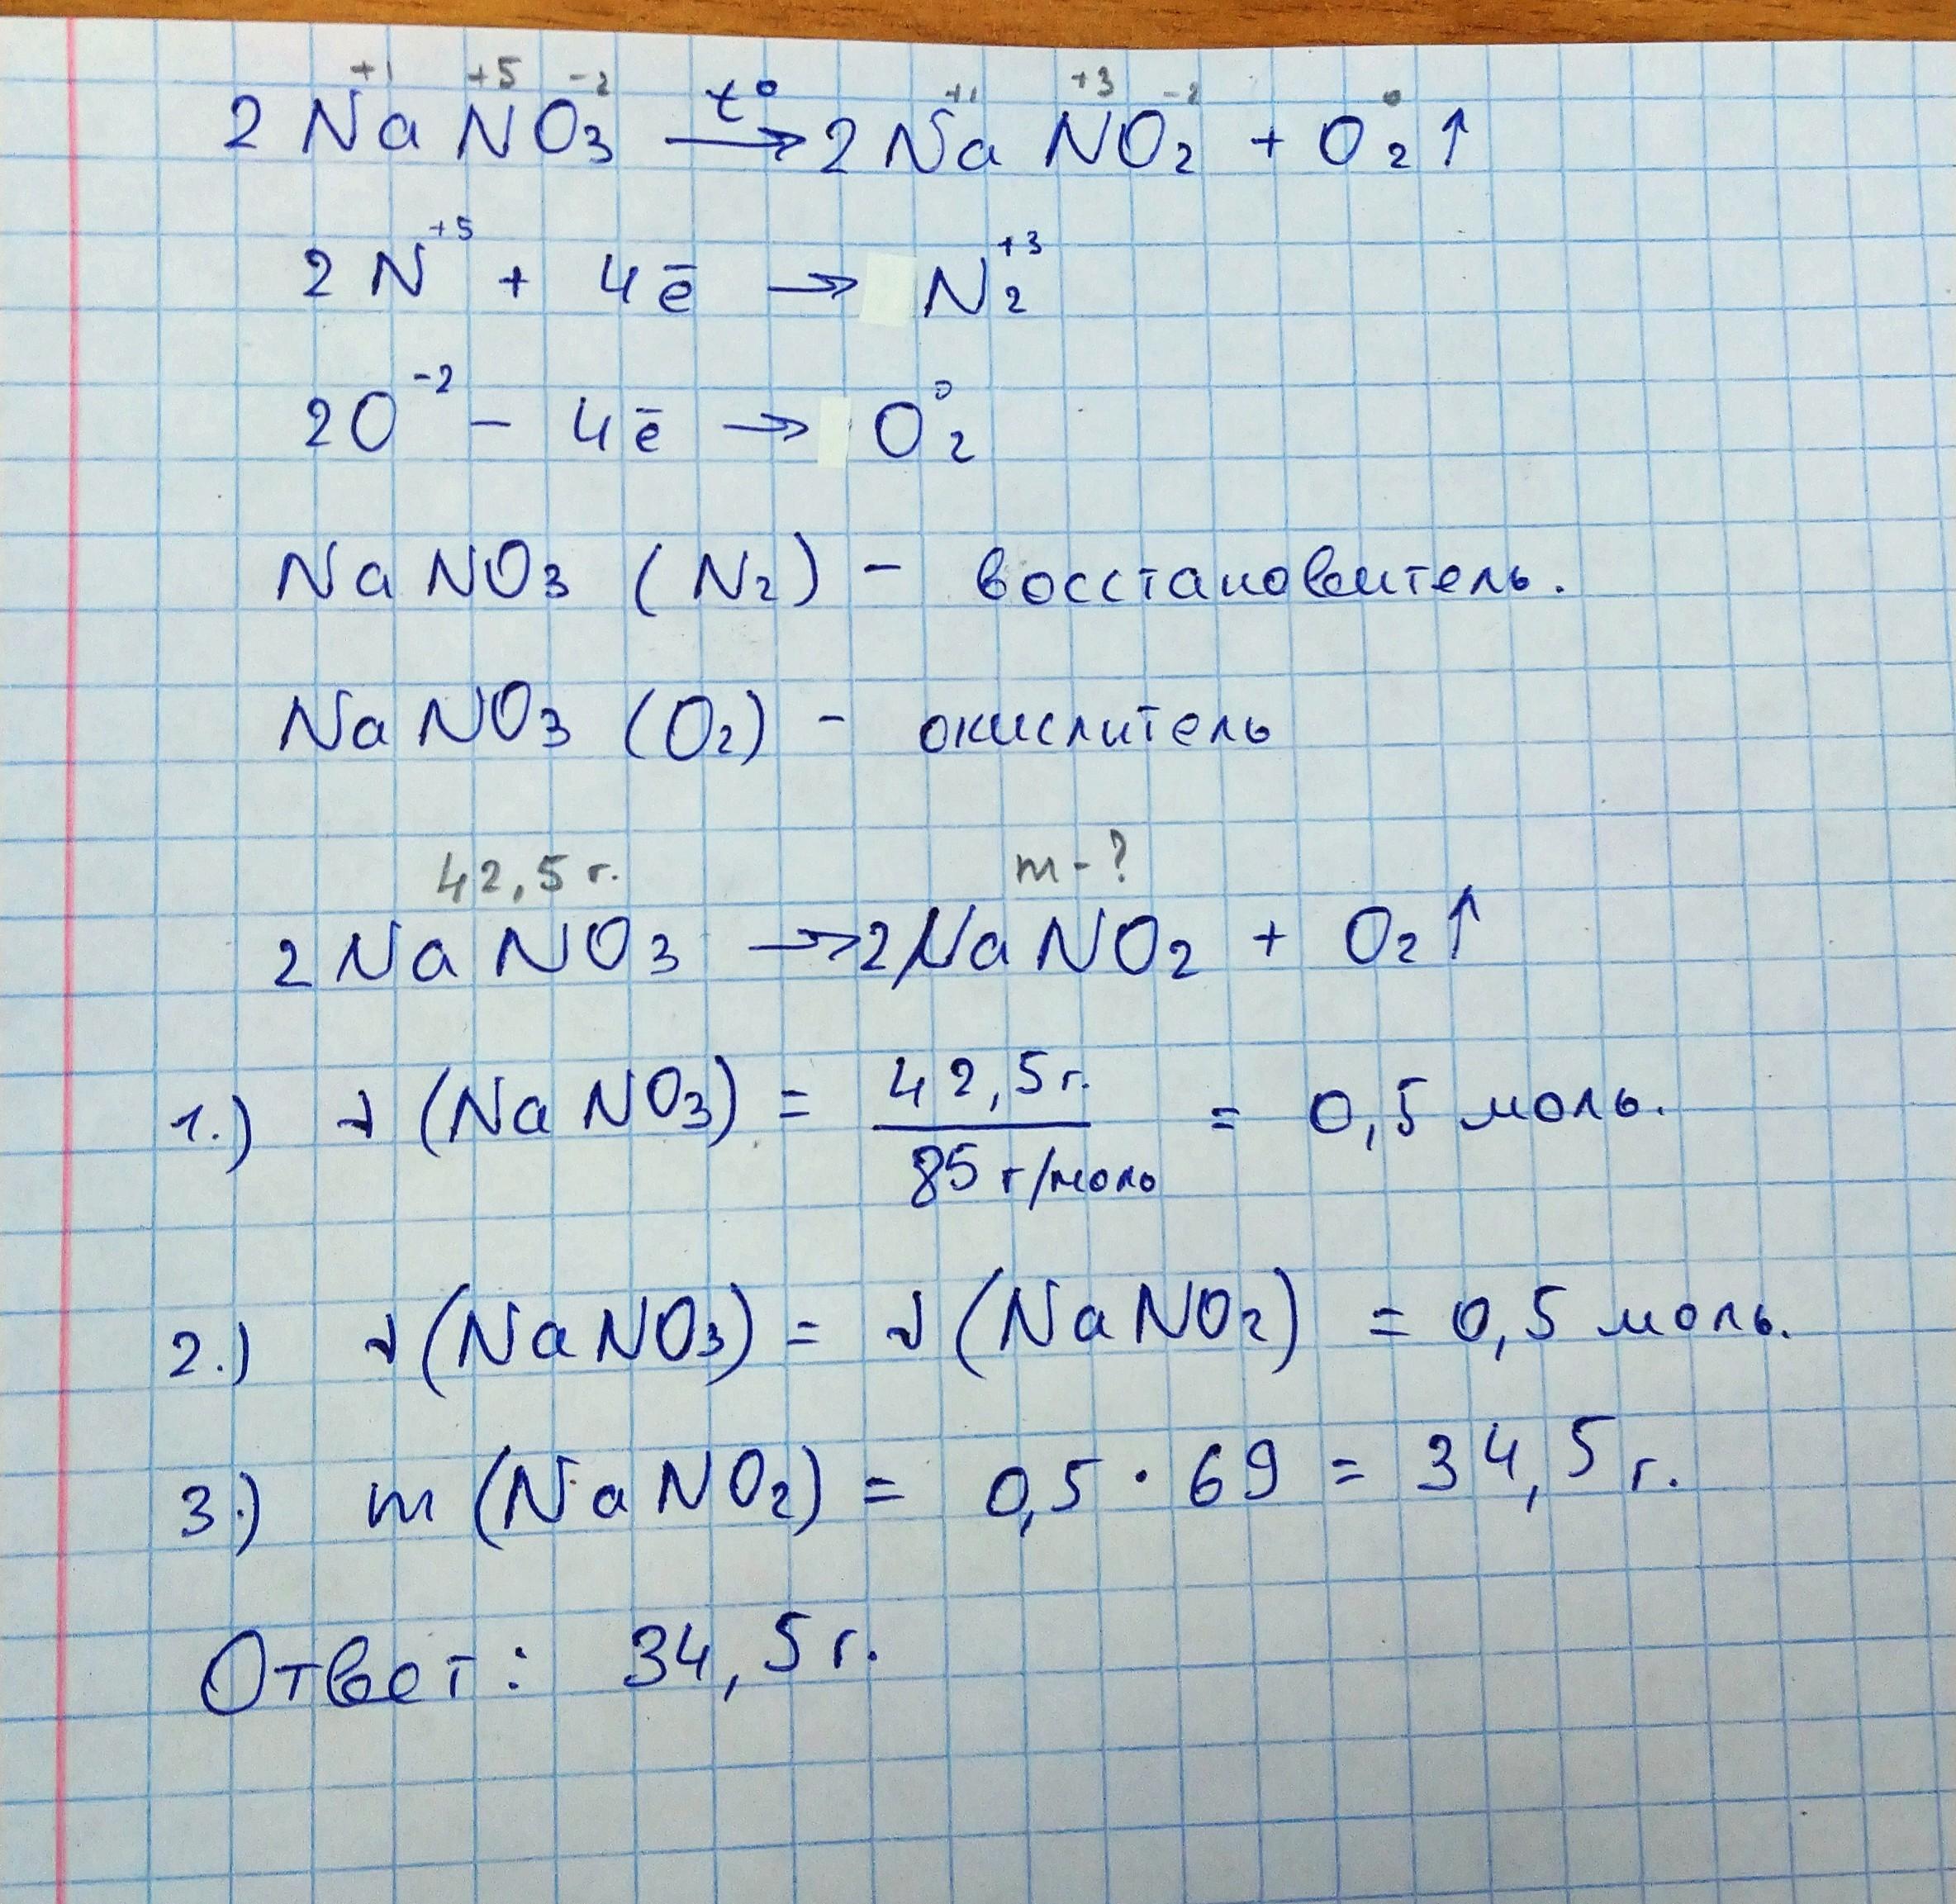 +1 +5 -2 t° +1 +3 -2 0
2 Na NO₃ → 2 Na NO₂ + O₂ ↑
2 N⁺⁵ + 4 ē → N₂⁺³
2 O⁻² - 4 ē → O₂⁰
Na NO₃ (N₂) - восстановитель.
Na NO₃ (O₂) - окислитель
42,5 г. m - ?
2 Na NO₃ → 2 Na NO₂ + O₂ ↑
1.) ν (Na NO₃) = 42,5 г. / 85 г/моль = 0,5 моль.
2.) ν (Na NO₃) = ν (Na NO₂) = 0,5 моль.
3.) m (Na NO₂) = 0,5 · 69 = 34,5 г.
Ответ: 34,5 г.